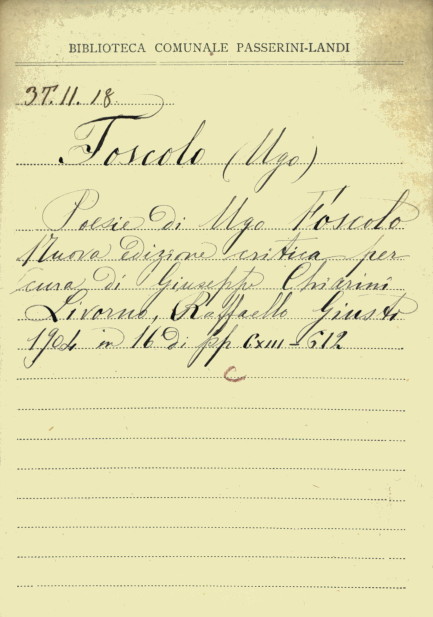 BIBLIOTECA COMUNALE PASSERINI-LANDI
3T.II.18.
Foscolo (Ugo)
Poesie di Ugo Fóscolo
Nuova edizione critica per
cura di Giuseppe Chiarini
Livorno, Raffaello Giusti
1904 in 16 di pp CXIII-512
C